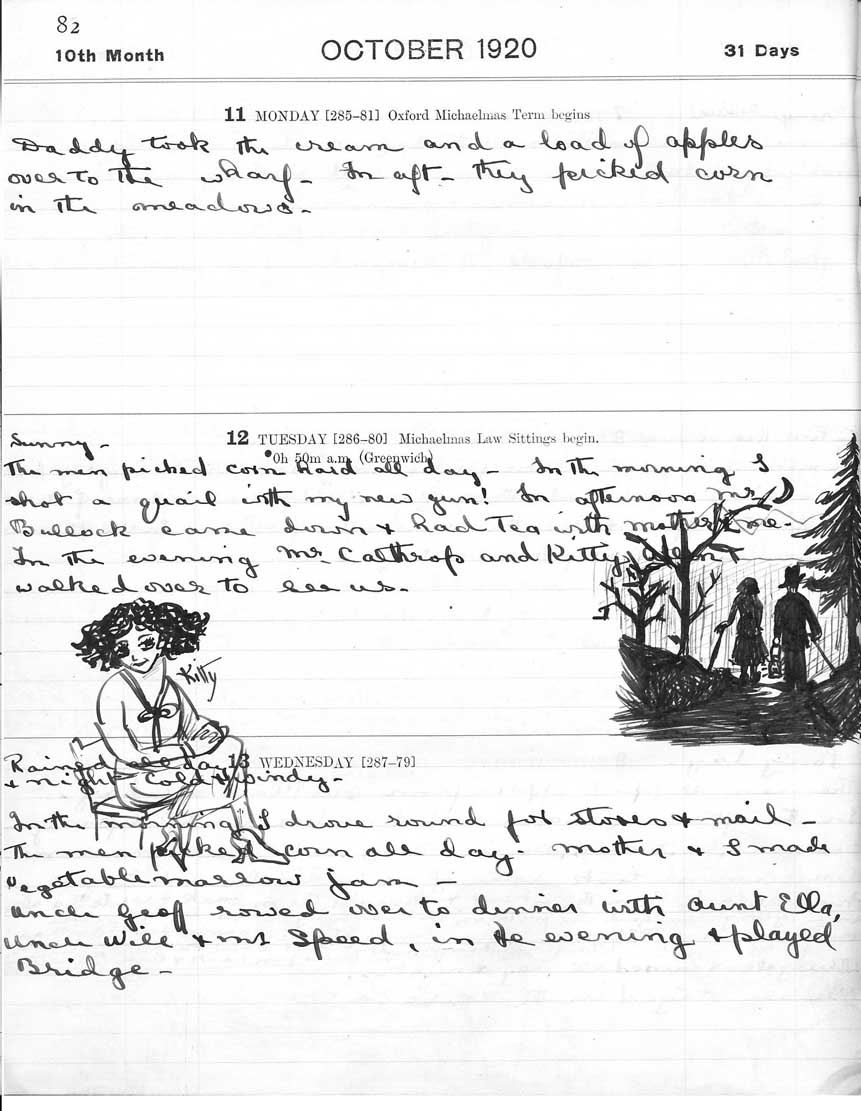 82
10th Month OCTOBER 1920 31 Days
11 MONDAY [285-81] Oxford Michaelmas Term begins
Daddy took the cream and a load of apples
over to the wharf - In aft - they picked corn
in the meadows -
12 TUESDAY [286-80] Michaelmas Law Sittings begin.
Sunny -
●0h 50m a.m. (Greenwich)
The men picked corn hard all day - In the morning I
shot a quail with my new gun! In afternoon Mrs
Bullock came down & had Tea with mother & me -
In the evening Mr. Calthrop and Kitty &
walked over to see us -
Kitty
13 WEDNESDAY [287-79]
Rained all day
& night - Cold & windy -
In the morning I drove round for stores & mail -
The men picked corn all day - mother & I made
vegetable marrow jam -
Uncle Geoff rowed over to dinner with Aunt Ella,
Uncle Will & Mr Speed, in the evening & played
Bridge -